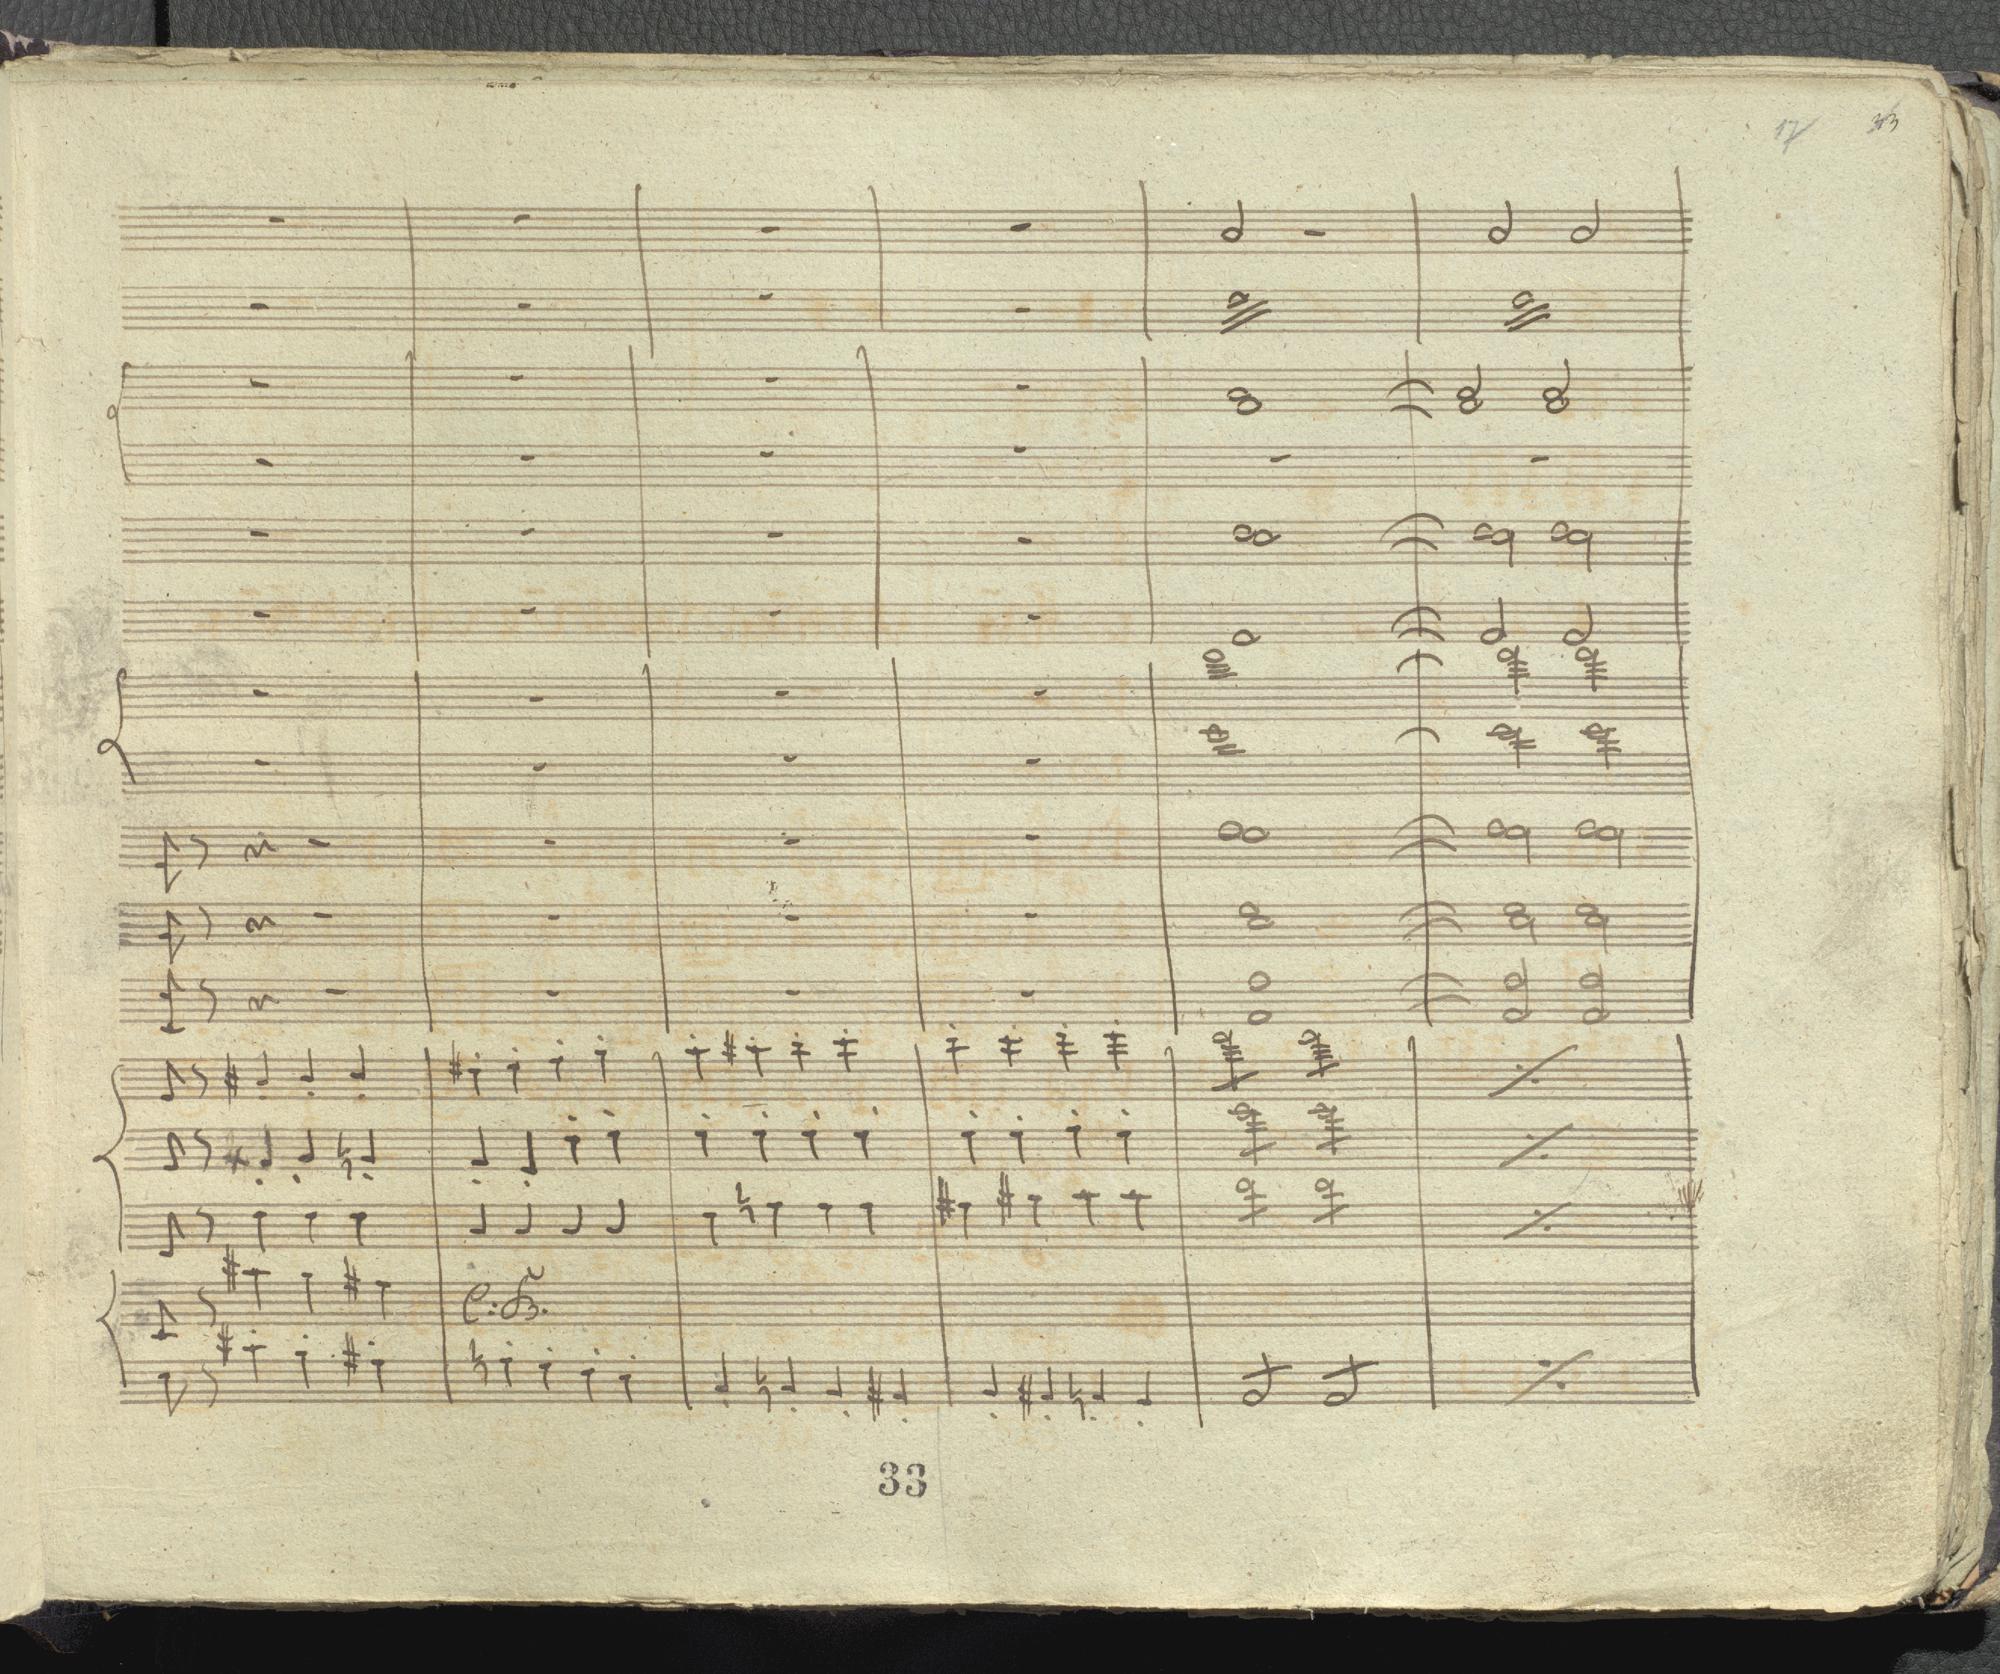 17 33
C: B.
33